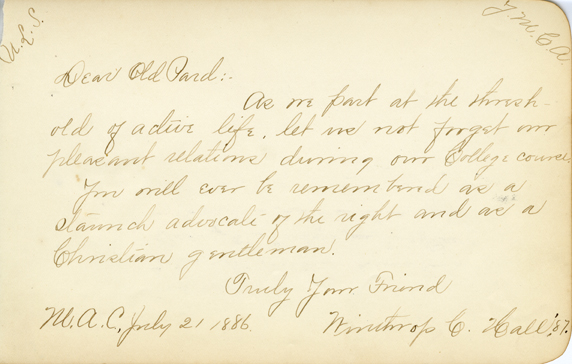 U. L. S.
Y. M. C. A.
Dear Old Pard:-
As we part at the thresh-
old of active life, let us not forget our
pleasant relations during our College course.
You will ever be remembered as a
staunch advocate of the right and as a
Christian gentleman.
Truly Your Friend
M. A. C., July 21 1886.
Winthrop C. Hall '87.